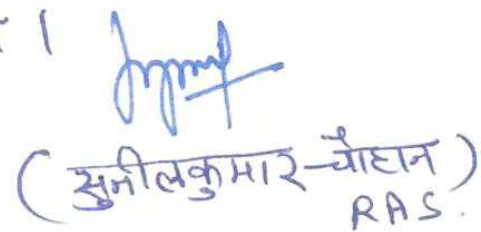 (सुनीलकुमार चौहान)
RAS.